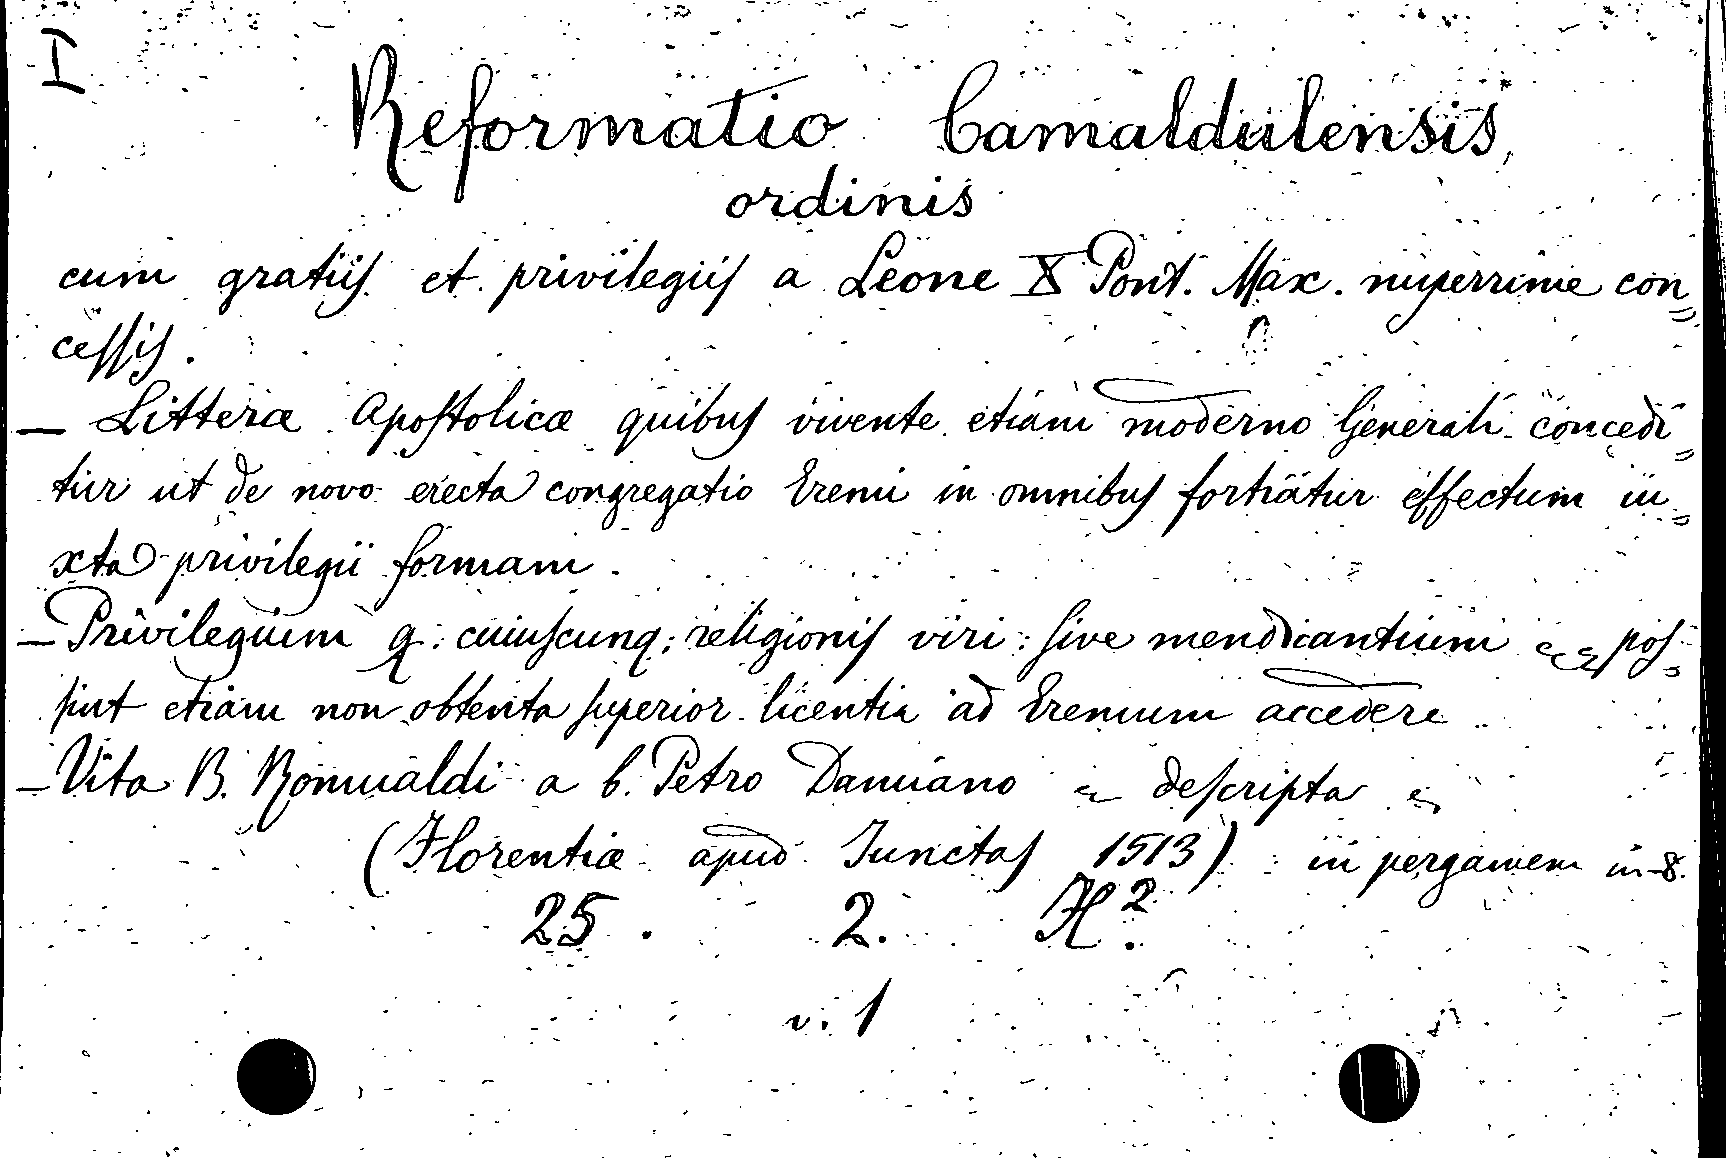 I
Reformatio Camaldulensis,
ordinis
cum gratiiſ et privilegiiſ a Leone X Pont. Max. nuperrime con=
ceſſiſ.
— Litteræ Apoſtolicæ quibuſ vivente etiam moderno Generali concedi=
tur ut de novo erecta congregatio Eremi in omnibuſ ſortiatur effectum iu=
xta privilegii formam.
— Privilegium q: cuiuſcunq: religioniſ viri: ſive mendicantium poſ=
ſint etiam non obtenta ſuperior. licentia ad Eremum accedere
— Vita B. Romualdi a b. Petro Damiano deſcripta
(Florentiæ apud Iunctaſ 1513) in pergamen in-8.
25. 2. H².
v. 1